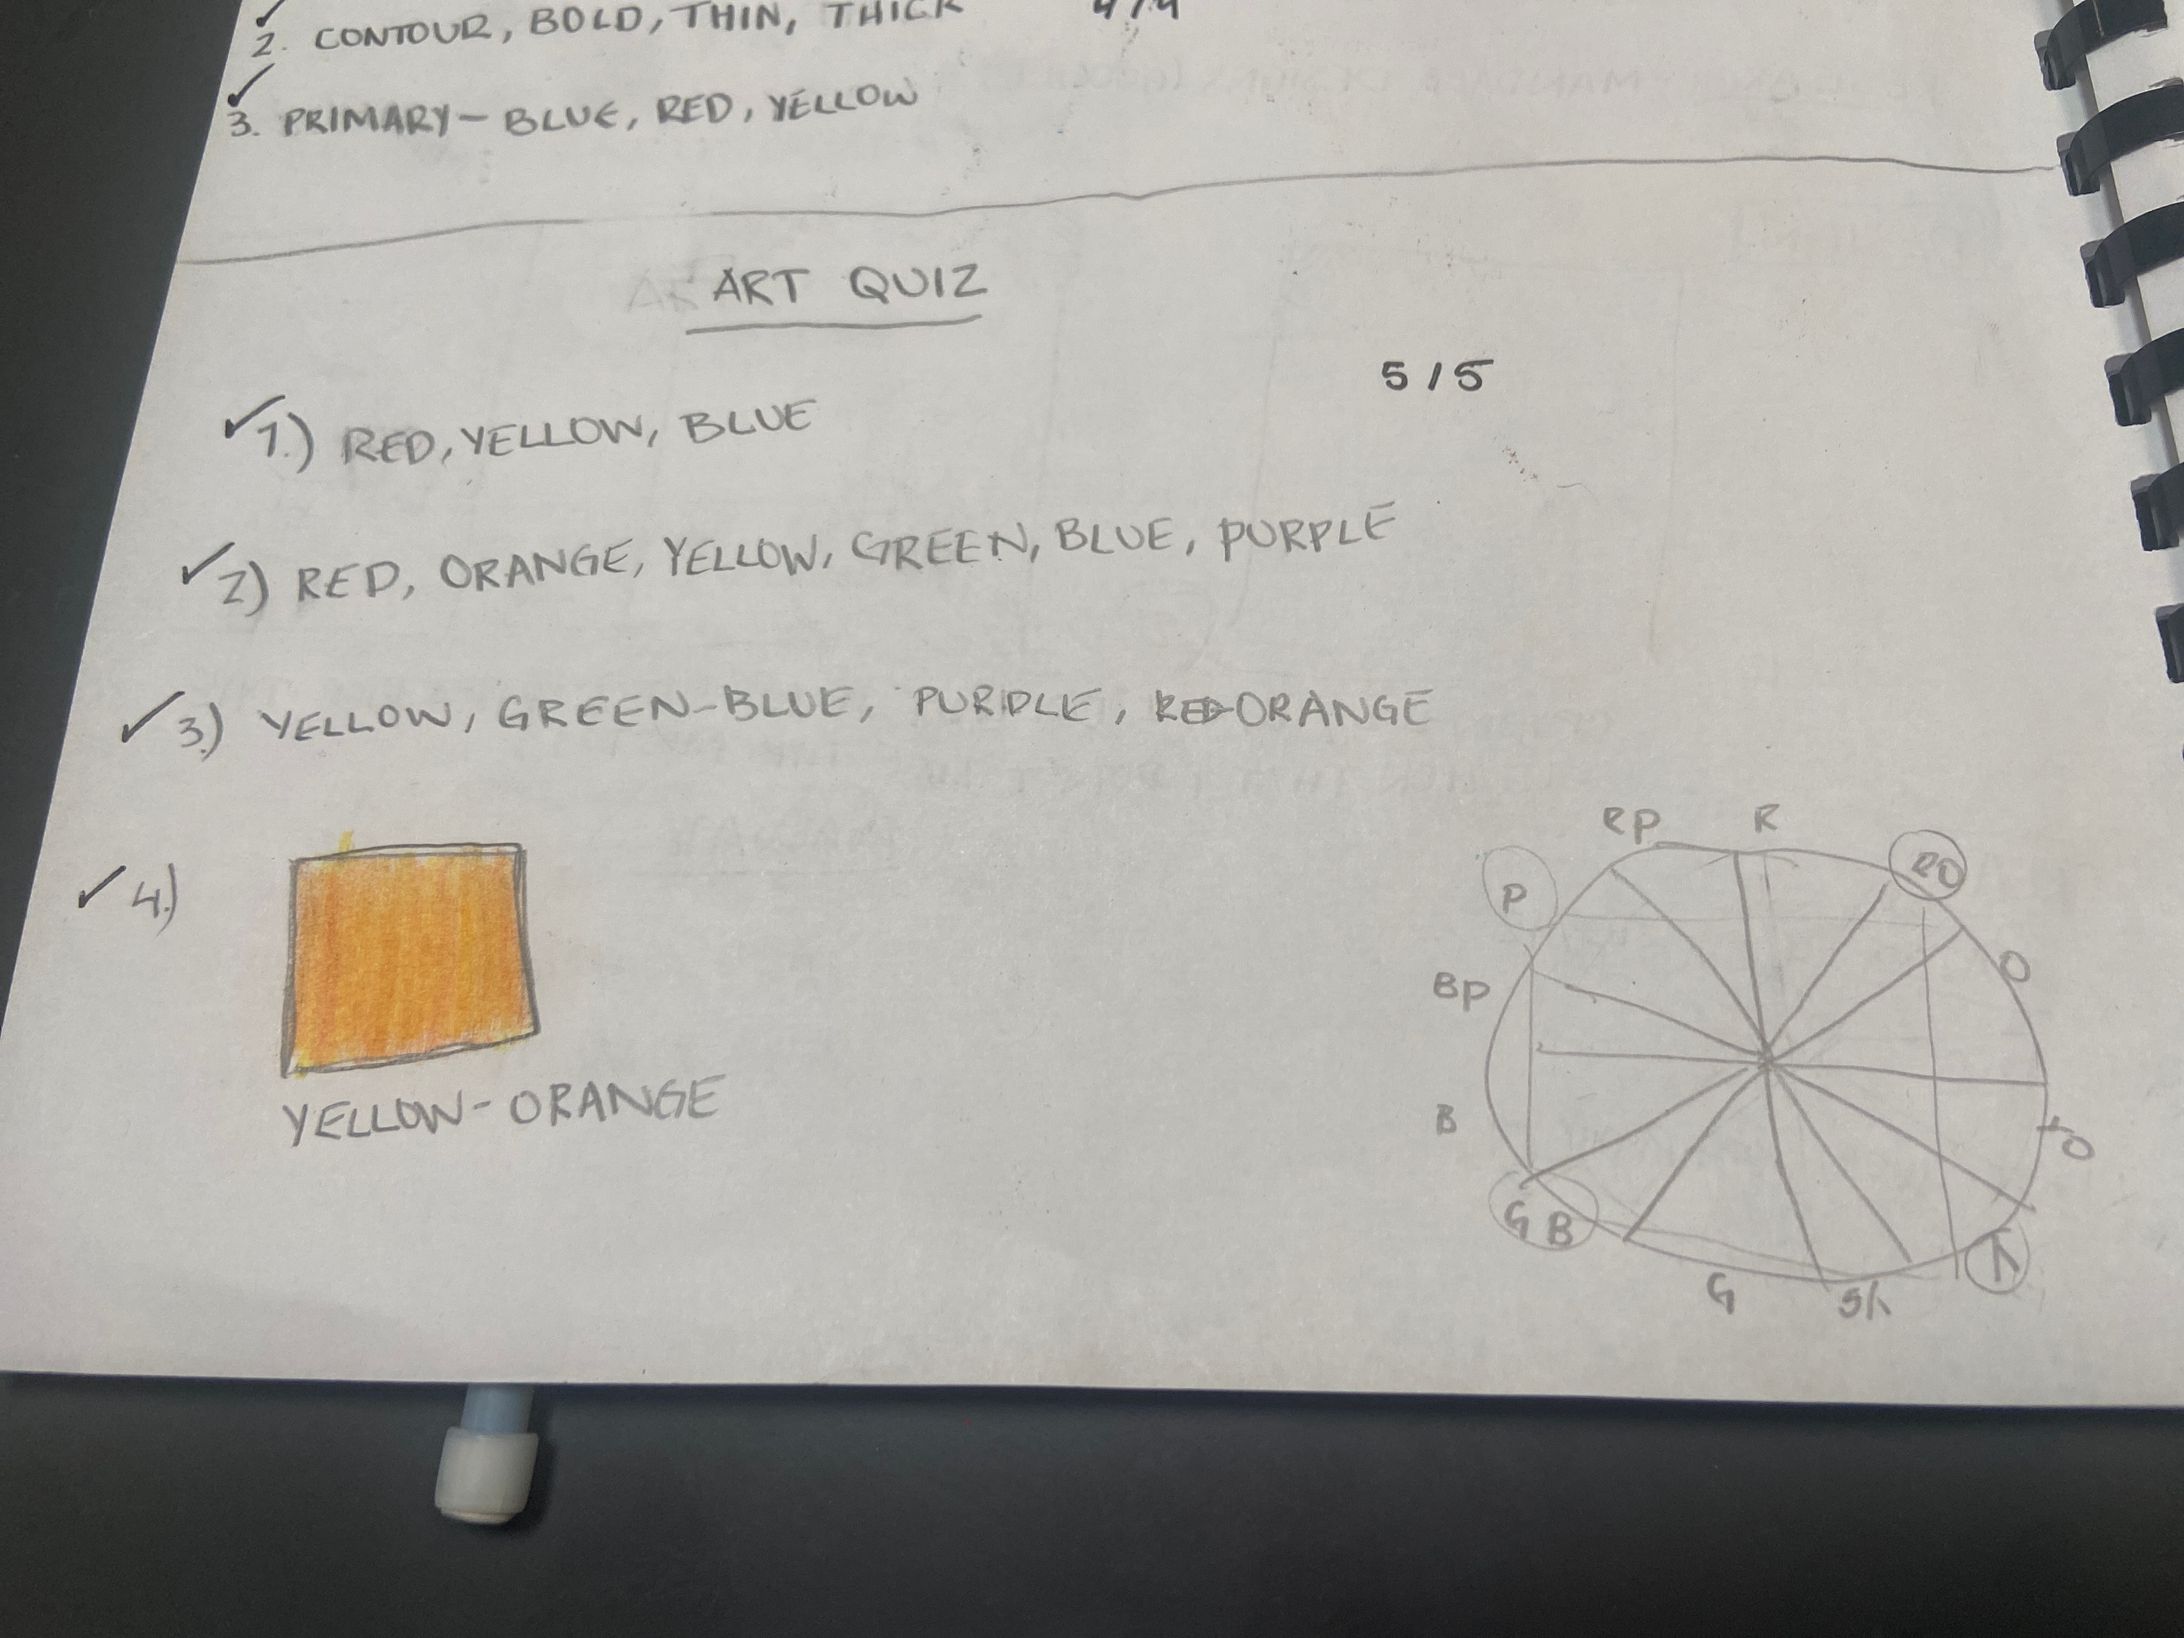 2. CONTOUR, BOLD, THIN, THICK
3. PRIMARY - BLUE, RED, YELLOW
ART QUIZ
5/5
1.) RED, YELLOW, BLUE
2) RED, ORANGE, YELLOW, GREEN, BLUE, PURPLE
3.) YELLOW, GREEN-BLUE, PURPLE, RED-ORANGE
4.)
YELLOW-ORANGE
RP R RO
P
O
BP
B
YO
GB
Y
G